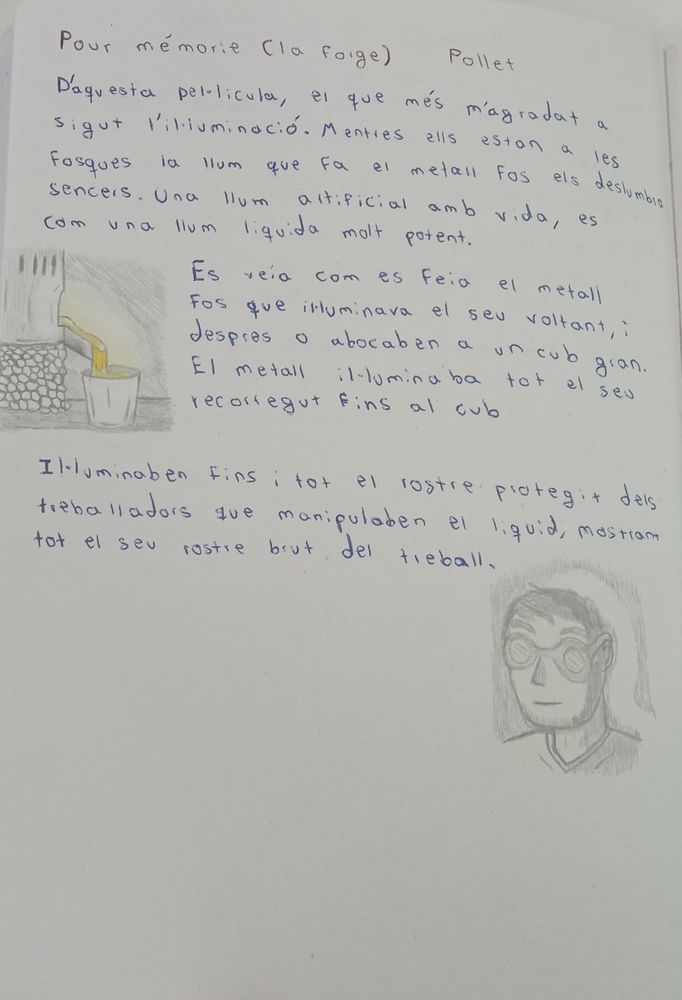 Pour mémorie (la forge) Pollet
D'aquesta pel·licula, el que més m'agradat a
sigut l'il·iuminació. Mentres ells estan a les
fosques la llum que fa el metall fos els deslumbra
sencers. Una llum artificial amb vida, es
com una llum liquida molt potent.
Es veía com es feia el metall
fos que il·luminava el seu voltant, i
despres o abocaben a un cub gran.
El metall il·luminaba tot el seu
recorregut fins al cub
Il·luminaben fins i tot el rostre protegit dels
treballadors que manipulaben el liquid, mostrant
tot el seu rostre brut del treball.